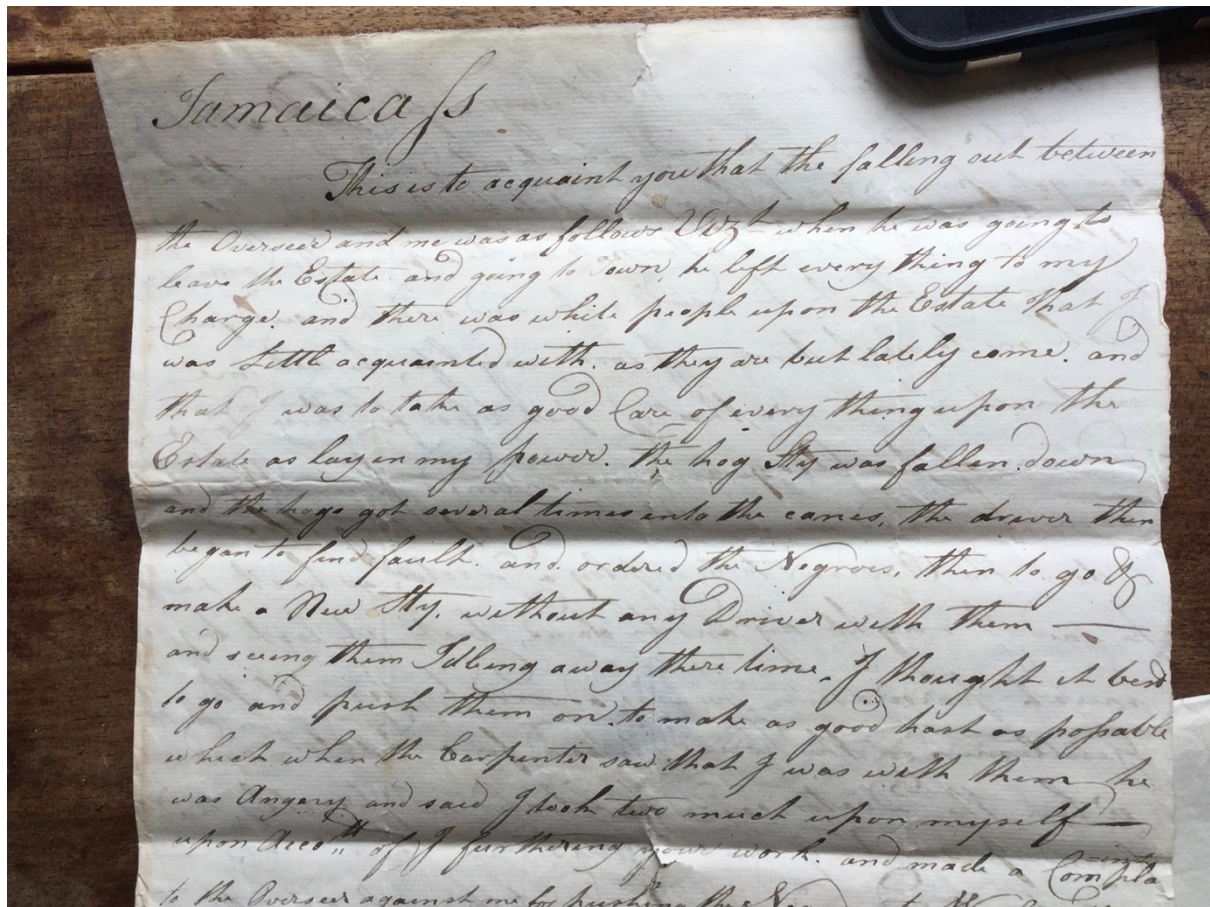 Jamaica ss
This is to acquaint you that the falling out between
the Overseer and me was as follows Vizt when he was going to
leave the Estate and going to Town, he left every thing to my
Charge. and there was white people upon the Estate That I
was Little acquainted with. as they are but lately come. and
that I was to take as good Care of every thing upon the
Estate as lay in my power. the hog Sty was fallen down
and the hogs got several times into the canes, the driver then
began to find fault. and ordered the Negroes, then to go &
make a New Sty, without any Driver with them —
and seeing them Idling away there time, I thought it best
to go and push them on. to make as good hast as possable
which when the Carpenter saw that I was with them he
was Angery and said I took two much upon myself —
upon Accott of I furthering your work. and made a Complaint
to the Overseer against me for pushing the